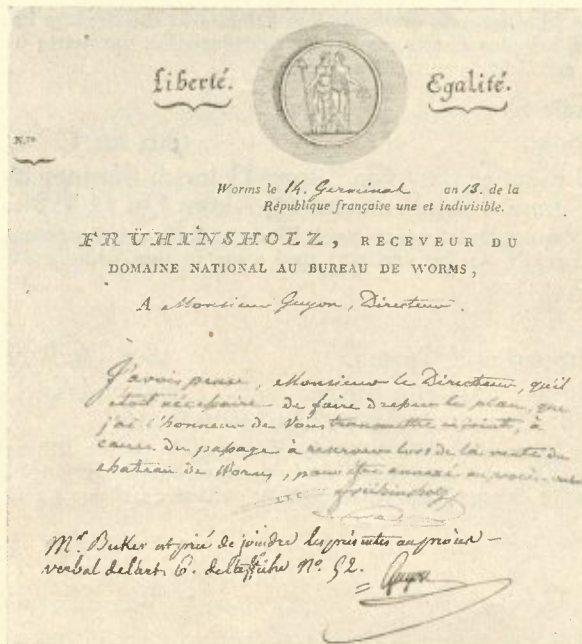 Liberté. Egalité.
N.ro
Worms le 14. Germinal an 13. de la
République française une et indivisible.
FRÜHINSHOLZ, RECEVEUR DU
DOMAINE NATIONAL AU BUREAU DE WORMS,
A Monsieur Guyon, Directeur.
J'avois pensé, Monsieur le Directeur, qu'il
étoit nécessaire de faire dresser le plan, que
j'ai l'honneur de vous transmettre ci joint, à
cause du passage à reserver lors de la vente du
chateau de Worms, pour être annexé au
Frühinsholz
Mr. Beker est prié de joindre les présentes au procès-
verbal de l'art. 6. de l'affiche No. 52.
Guyon